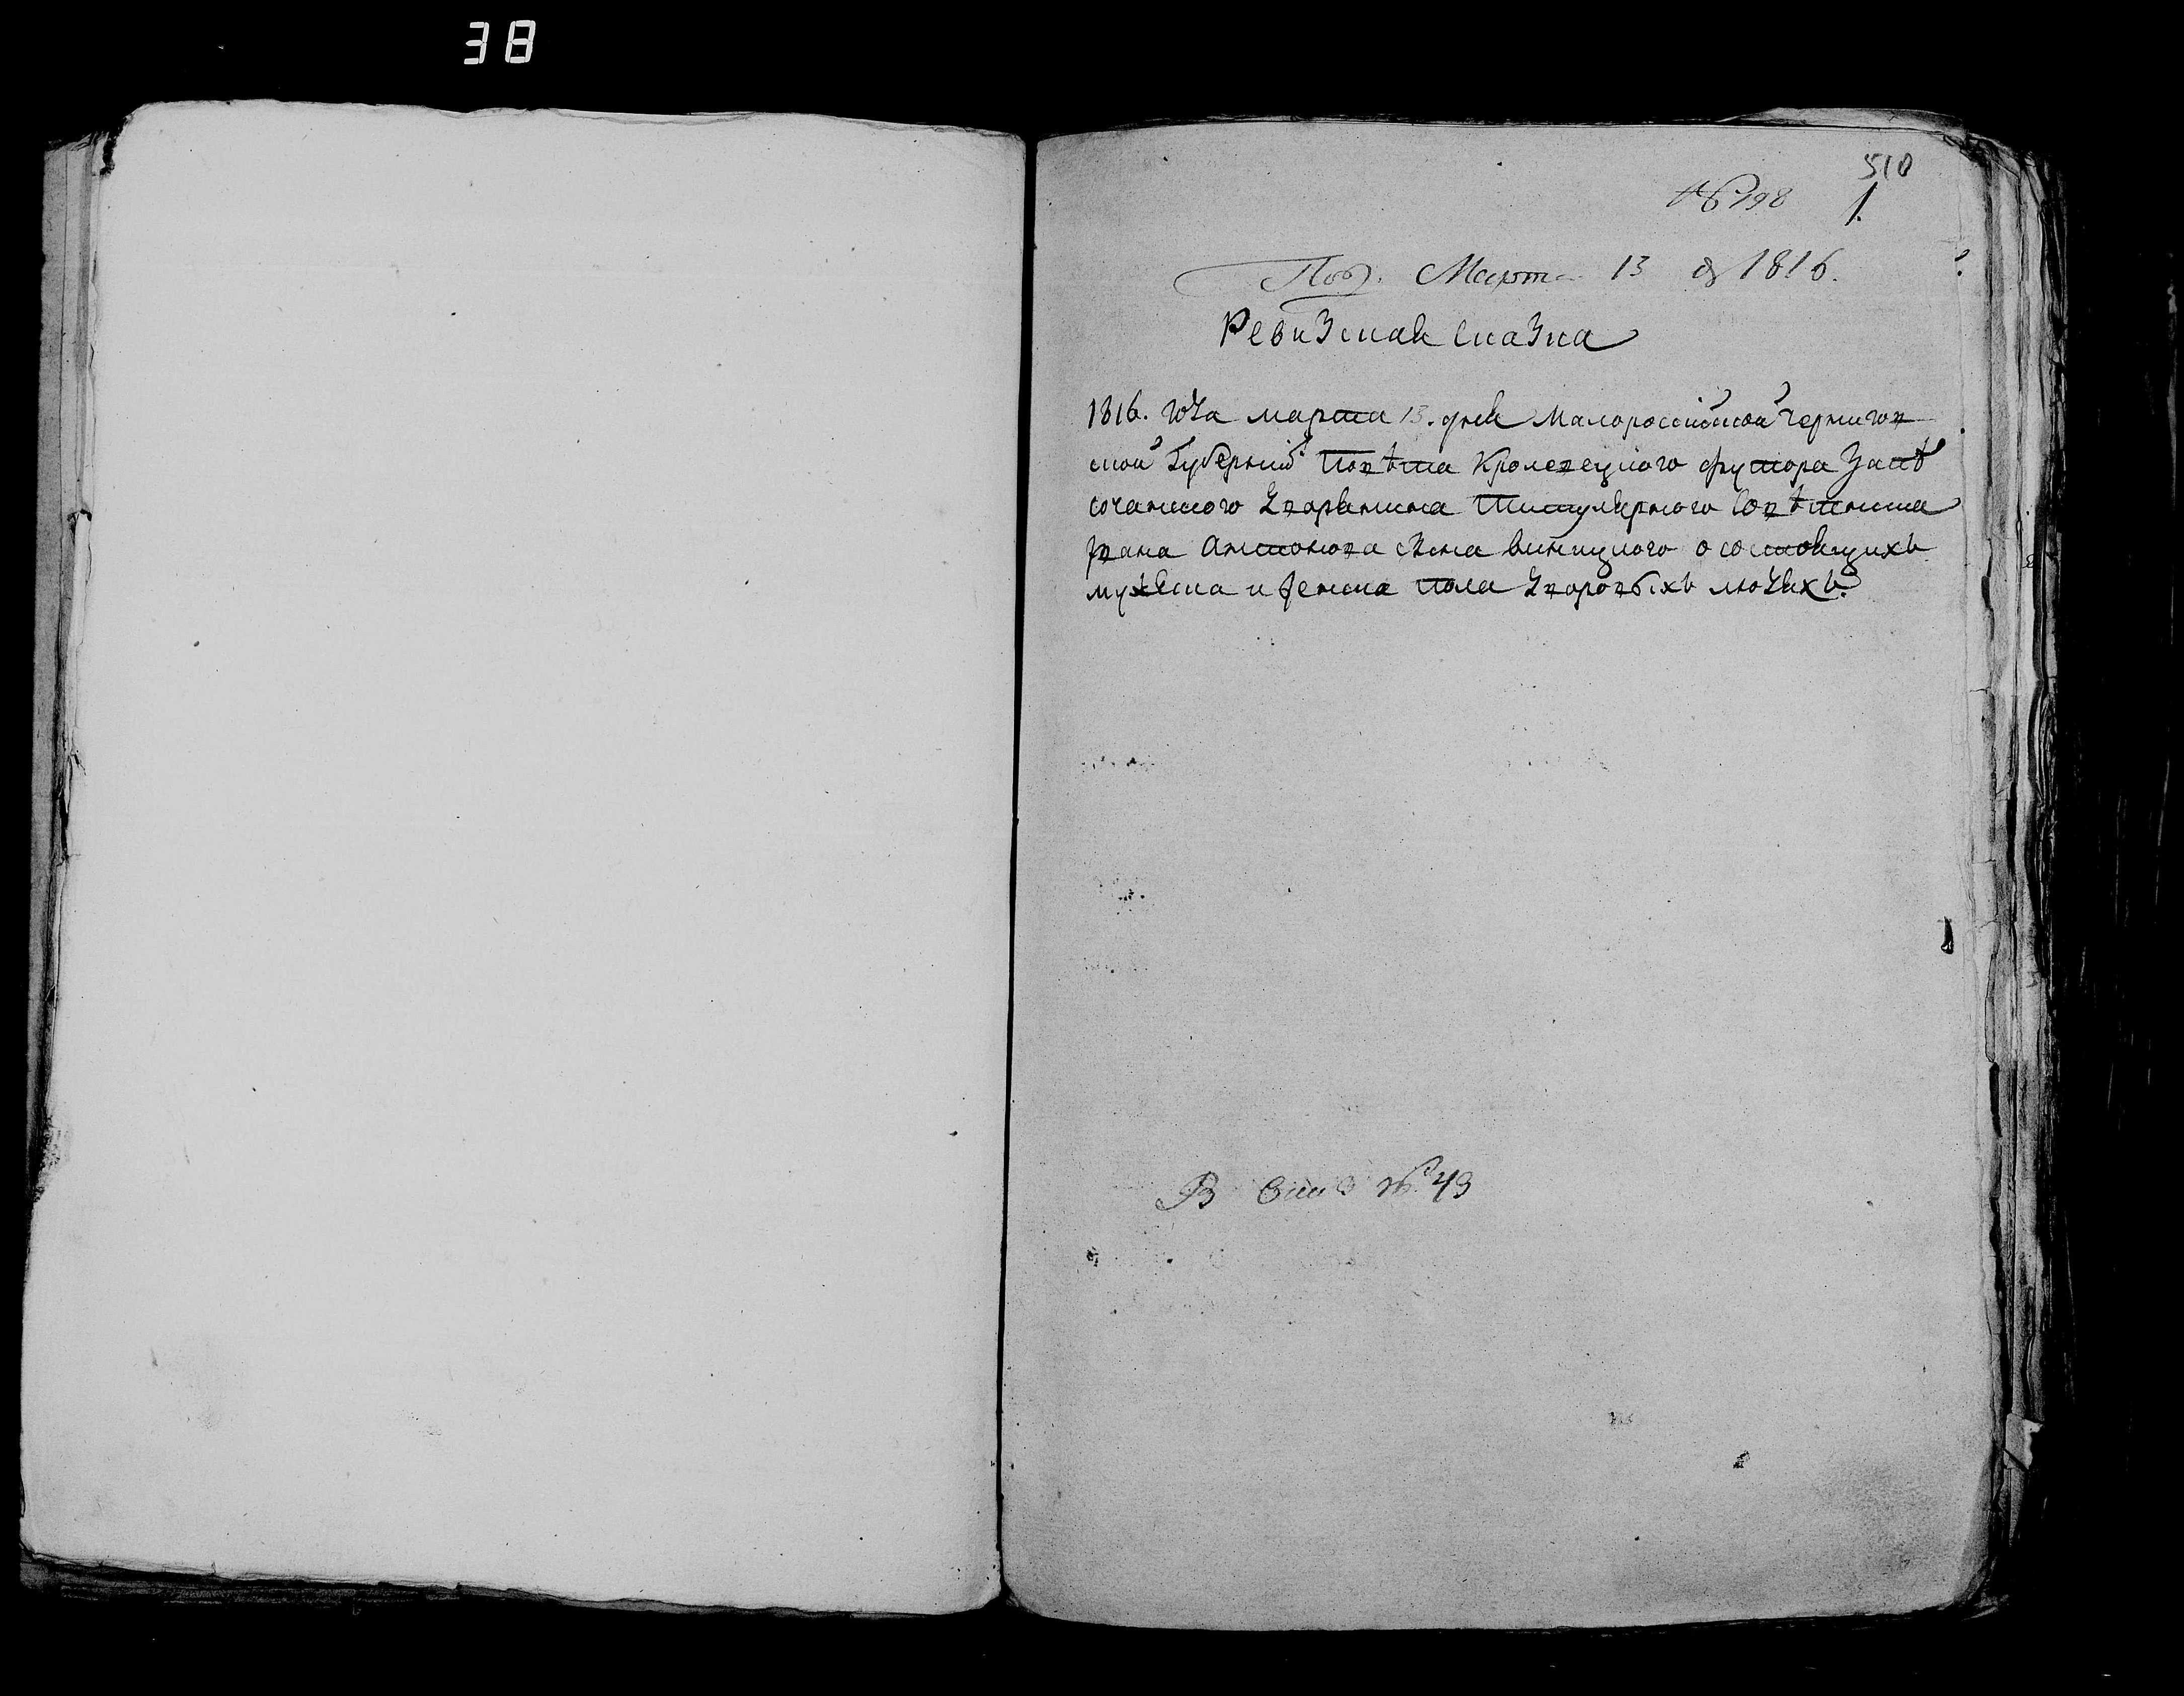 38
510
№ 798 1.
Под. Марта 13 д 1816.
Ревизская сказка
1816. года марта 13. дня Малороссийской Чернигов
ской Губерний повѣта Кролевецкого футора Запѣ
сочанского дворянина Титулярного Совѣтника
Ивана Антонова сына виницкого о состоящихъ
мужеска и женска пола дворовыхъ людяхъ.
В № 43